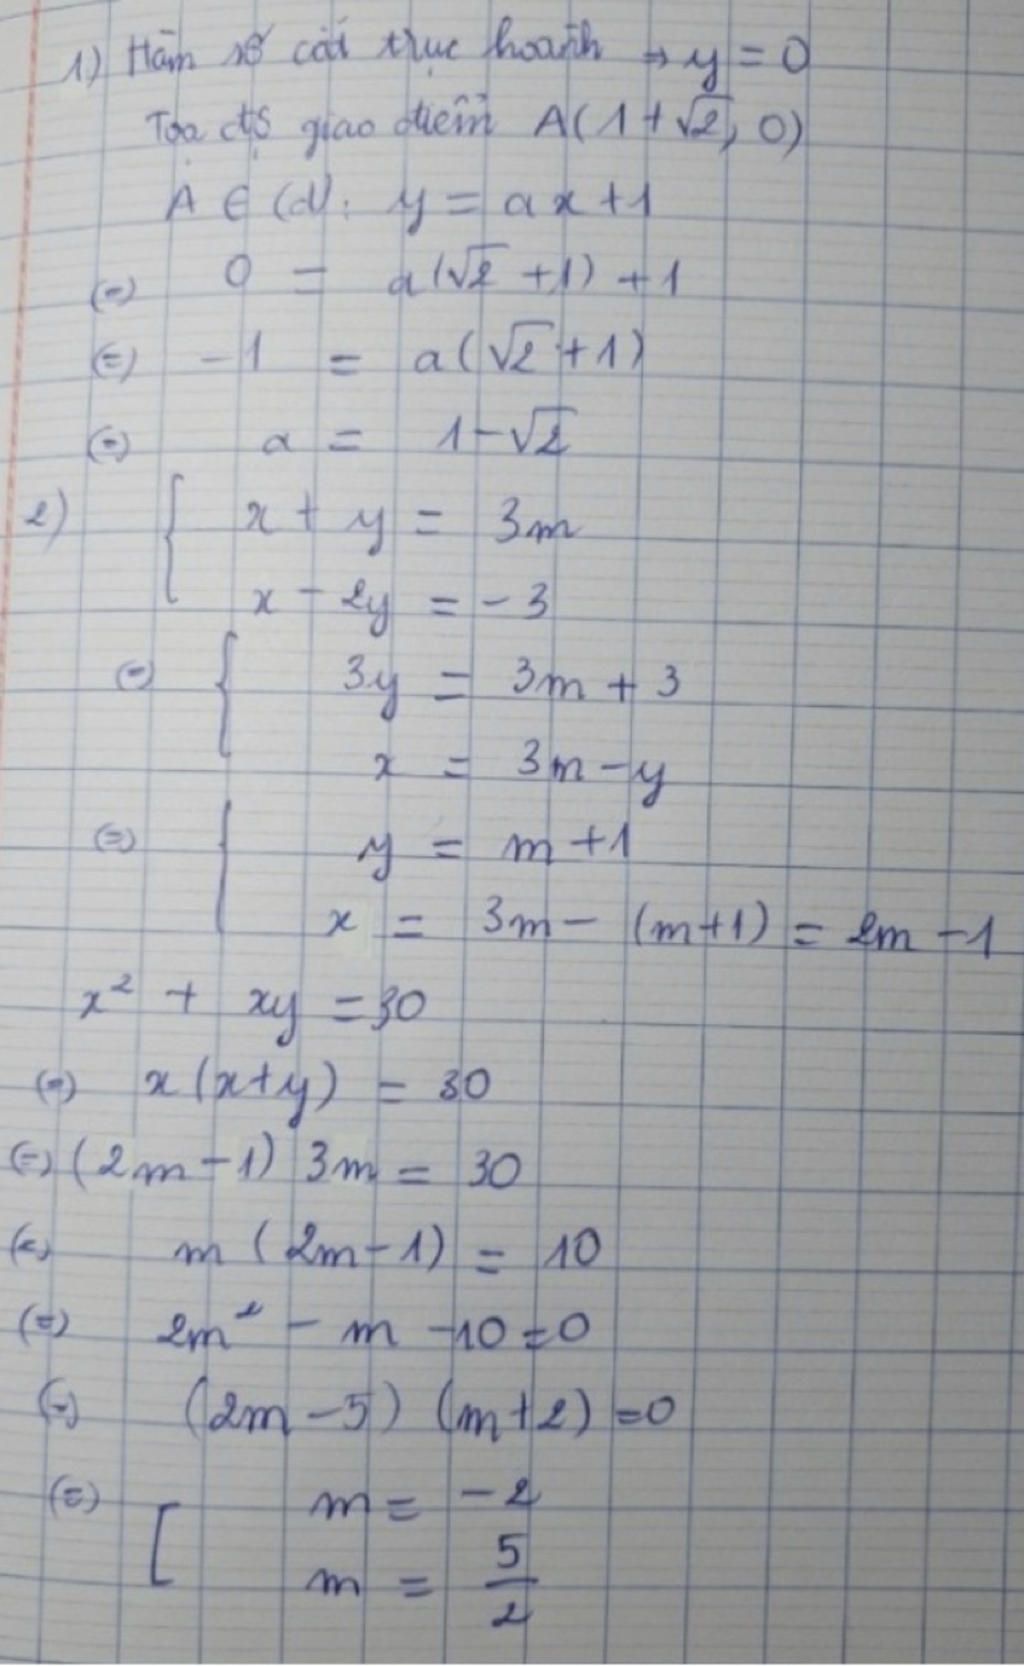 1) Hàm số cắt trục hoành → y = 0
Tọa độ giao điểm A(1+√2, 0)
A ∈ (d): y = ax+1
(=) 0 = a(√2 +1) +1
(=) -1 = a(√2+1)
(=) a = 1-√2
2) { x + y = 3m
x - 2y = -3
(=) { 3y = 3m + 3
x = 3m - y
(=) { y = m +1
x = 3m - (m+1) = 2m -1
x² + xy = 30
(=) x(x+y) = 30
(=) (2m-1) 3m = 30
(=) m(2m-1) = 10
(=) 2m² - m -10=0
(=) (2m-5) (m+2) =0
(=) [ m = -2
m = 5/2